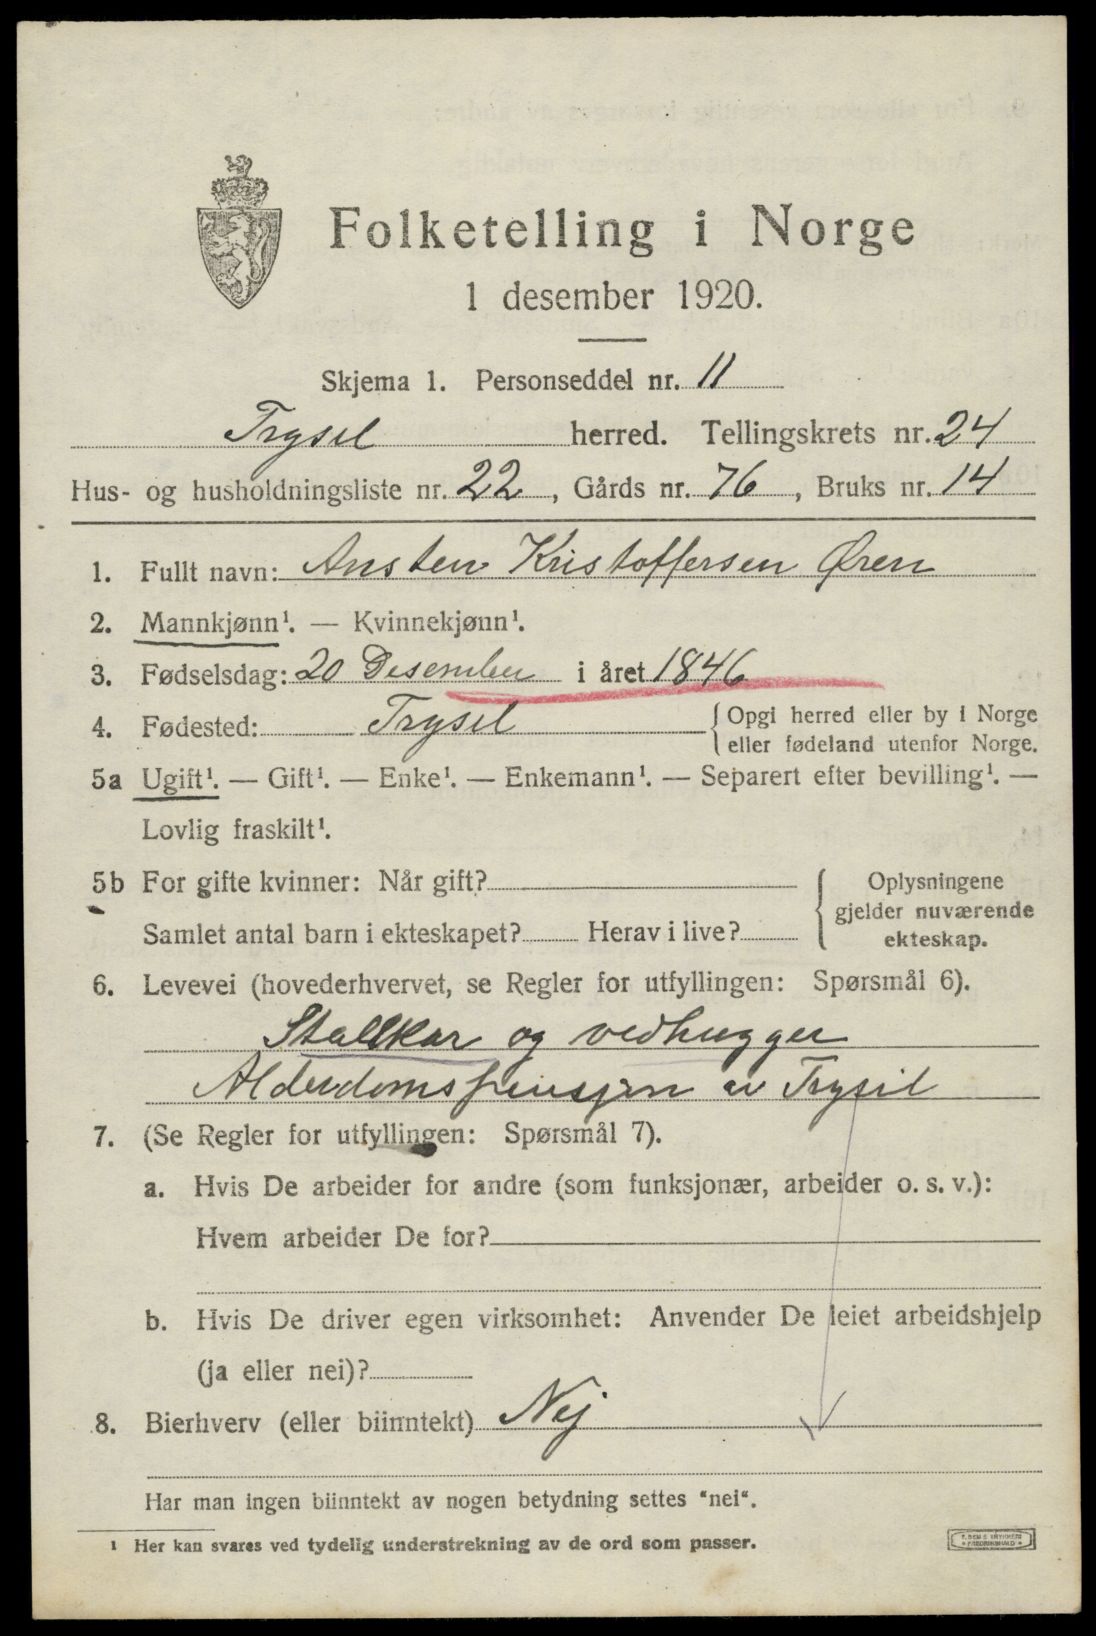 Folketelling i Norge
1 desember 1920.
Skjema 1. Personseddel nr. 11
Trysil herred. Tellingskrets nr. 24
Hus- og husholdningsliste nr. 22, Gårds nr. 76, Bruks nr. 14
1. Fullt navn: Ansten Kristoffersen Øren
2. Mannkjønn¹. — Kvinnekjønn¹.
3. Fødselsdag: 20 Desember i året 1846
4. Fødested: Trysil { Opgi herred eller by i Norge
eller fødeland utenfor Norge.
5a Ugift¹. — Gift¹. — Enke¹. — Enkemann¹. — Separert efter bevilling¹. —
Lovlig fraskilt¹.
5b For gifte kvinner: Når gift?
Samlet antal barn i ekteskapet? Herav i live?
{ Oplysningene
gjelder nuværende
ekteskap.
6. Levevei (hovederhvervet, se Regler for utfyllingen: Spørsmål 6).
Stallkar og vedhugger
Alderdomspensjon av Trysil
7. (Se Regler for utfyllingen: Spørsmål 7).
a. Hvis De arbeider for andre (som funksjonær, arbeider o. s. v.):
Hvem arbeider De for?
b. Hvis De driver egen virksomhet: Anvender De leiet arbeidshjelp
(ja eller nei)?
8. Bierhverv (eller biinntekt) Nej
Har man ingen biinntekt av nogen betydning settes "nei".
1 Her kan svares ved tydelig understrekning av de ord som passer.